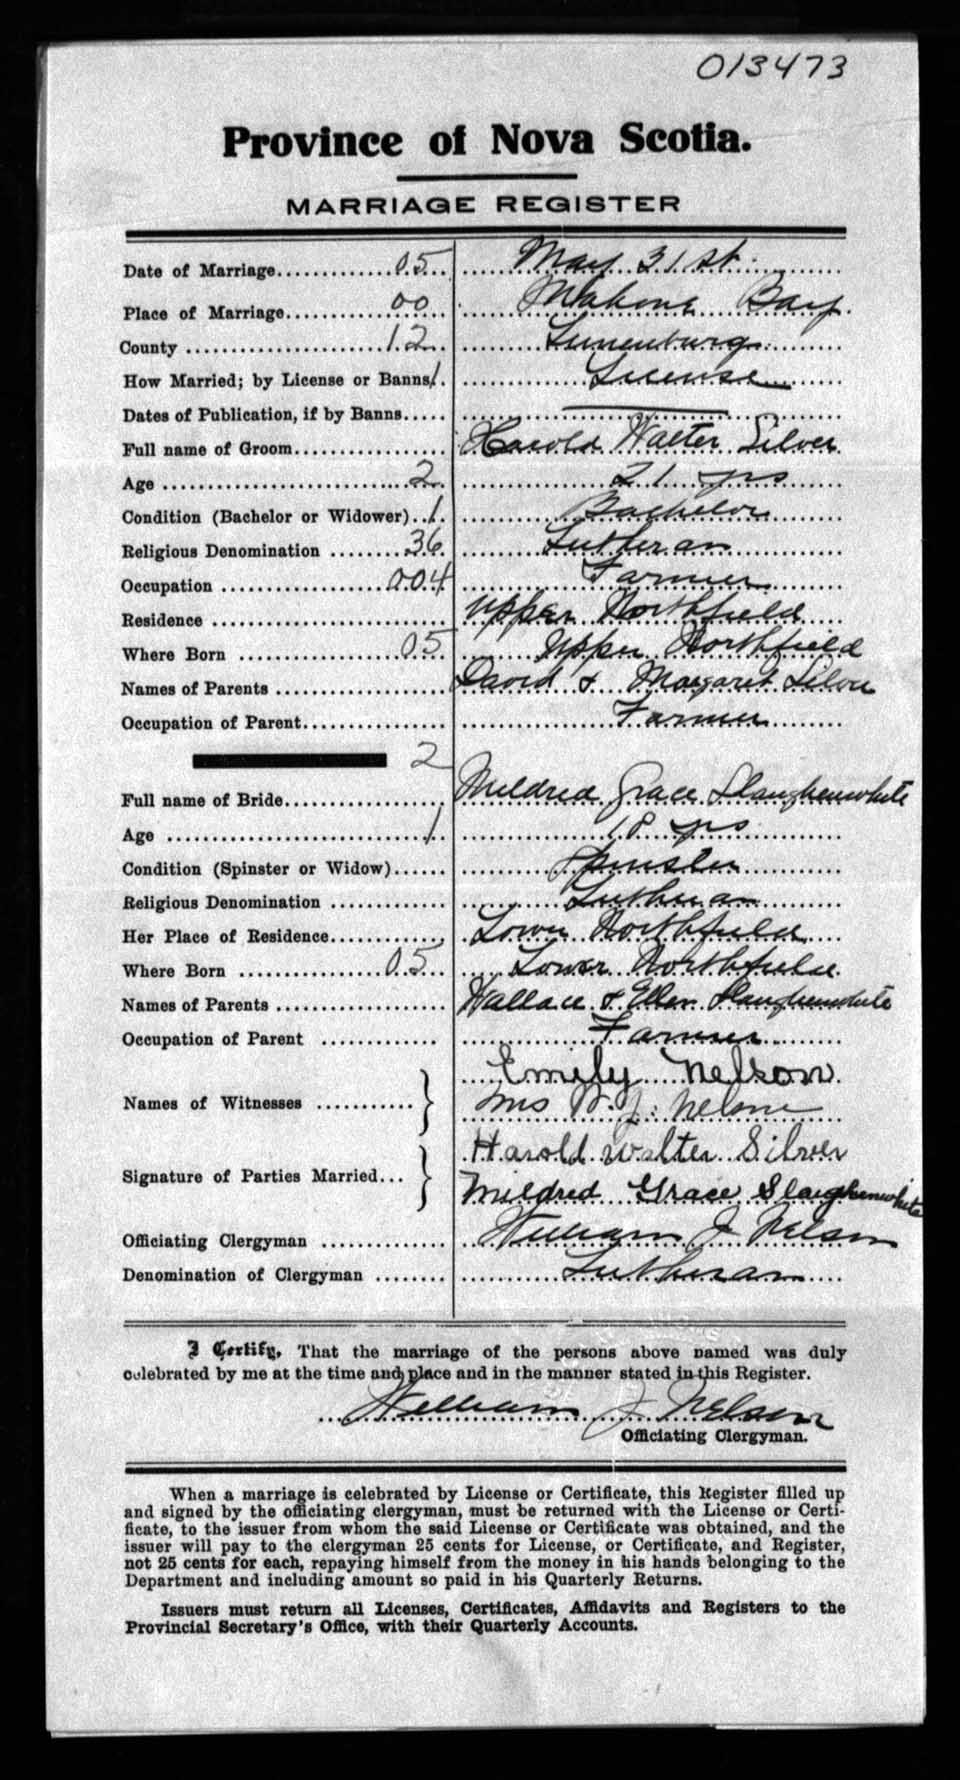 013473
Province of Nova Scotia.
MARRIAGE REGISTER
Date of Marriage 05 May 31st
Place of Marriage 00 Mahone Bay
County 12 Lunenburg
How Married; by License or Banns 1 License
Dates of Publication, if by Banns
Full name of Groom Harold Walter Silver
Age 2 21 yrs
Condition (Bachelor or Widower) 1 Bachelor
Religious Denomination 36 Lutheran
Occupation 004 Farmer
Residence Upper Northfield
Where Born 05 Upper Northfield
Names of Parents David & Margaret Silver
Occupation of Parent Farmer
2
Full name of Bride Mildred Grace Slaughenwhite
Age 1 18 yrs
Condition (Spinster or Widow) Spinster
Religious Denomination Lutheran
Her Place of Residence Lower Northfield
Where Born 05 Lower Northfield
Names of Parents Wallace & Ellen Slaughenwhite
Occupation of Parent Farmer
Names of Witnesses } Emily Nelson
Mrs W. J. Nelson
Signature of Parties Married } Harold Walter Silver
Mildred Grace Slaughenwhite
Officiating Clergyman William J Nelson
Denomination of Clergyman Lutheran
I Certify, That the marriage of the persons above named was duly
celebrated by me at the time and place and in the manner stated in this Register.
William J Nelson
Officiating Clergyman.
When a marriage is celebrated by License or Certificate, this Register filled up
and signed by the officiating clergyman, must be returned with the License or Certi-
ficate, to the issuer from whom the said License or Certificate was obtained, and the
issuer will pay to the clergyman 25 cents for License, or Certificate, and Register,
not 25 cents for each, repaying himself from the money in his hands belonging to the
Department and including amount so paid in his Quarterly Returns.
Issuers must return all Licenses, Certificates, Affidavits and Registers to the
Provincial Secretary's Office, with their Quarterly Accounts.